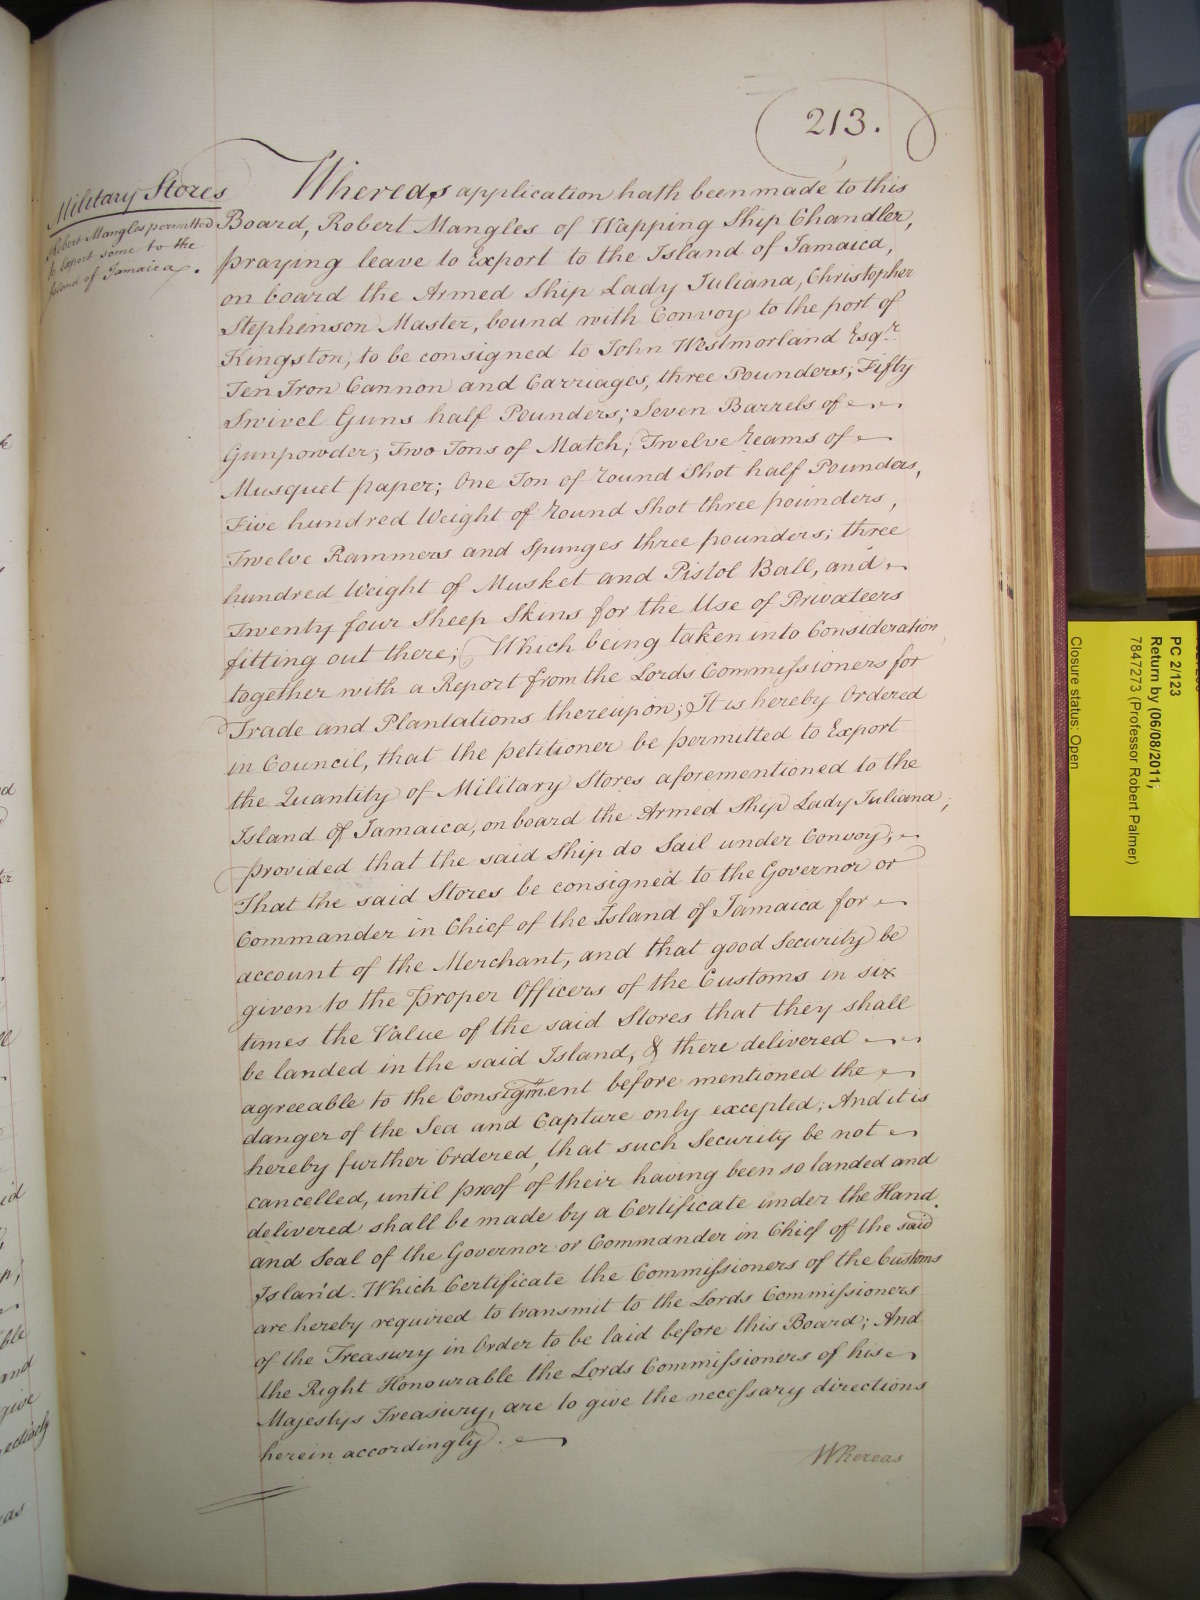 213.
Military Stores
Robert Mangles permitted
to Export some to the
Island of Jamaica.
Whereas application hath been made to this
Board, Robert Mangles of Wapping Ship Chandler,
praying leave to Export to the Island of Jamaica,
on board the Armed Ship Lady Juliana, Christopher
Stephenson Master, bound with Convoy to the port of
Kingston, to be consigned to John Westmorland Esqr.
Ten Iron Cannon and Carriages, three Pounders; Fifty
Swivel Guns half Pounders; Seven Barrels of
Gunpowder; Two Tons of Match; Twelve reams of
Musquet paper; One Ton of round Shot half Pounders,
Five hundred Weight of round Shot three pounders,
Twelve Rammers and Spunges three pounders; three
hundred Weight of Musket and Pistol Ball, and
Twenty four Sheep Skins for the Use of Privateers
fitting out there; Which being taken into Consideration
together with a Report from the Lords Commissioners for
Trade and Plantations thereupon; It is hereby Ordered
in Council, that the petitioner be permitted to Export
the Quantity of Military Stores aforementioned to the
Island of Jamaica, on board the Armed Ship Lady Juliana;
provided that the said Ship do Sail under Convoy;
That the said Stores be consigned to the Governor or
Commander in Chief of the Island of Jamaica for
account of the Merchant, and that good Security be
given to the Proper Officers of the Customs in six
times the Value of the said Stores that they shall
be landed in the said Island, & there delivered
agreeable to the Consignment before mentioned the
danger of the Sea and Capture only excepted; And it is
hereby further Ordered, that such Security be not
cancelled, until proof of their having been so landed and
delivered shall be made by a Certificate under the Hand
and Seal of the Governor or Commander in Chief of the said
Island. Which Certificate the Commissioners of the Customs
are hereby required to transmit to the Lords Commissioners
of the Treasury in Order to be laid before this Board; And
the Right Honourable the Lords Commissioners of his
Majestys Treasury, are to give the necessary directions
herein accordingly.
Whereas
PC 2/123
Return by (06/08/2011;
7847273 (Professor Robert Palmer)
Closure status: Open